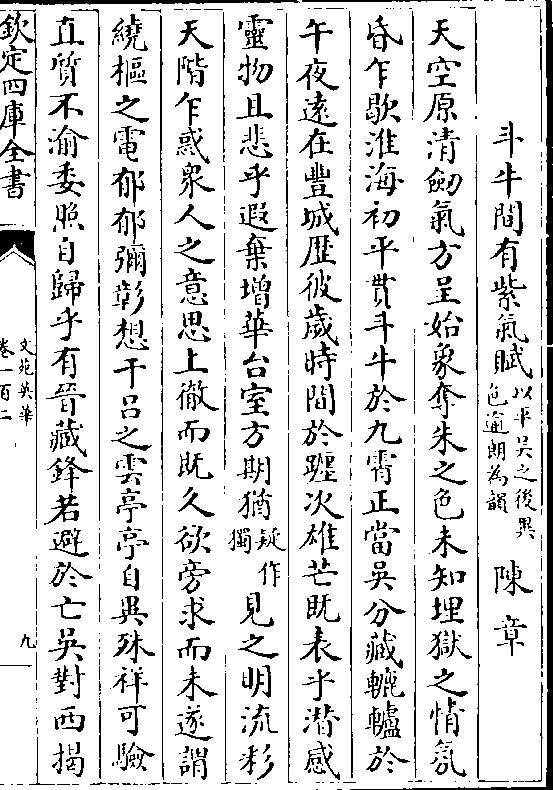 斗牛間有紫氣賦以平吳之後異色逾朗為韻 陳章
天空原清劒氣方呈始象奪朱之色未知埋獄之情氛
昏乍歇淮海初平貫斗牛於九霄正當吳分藏轆轤於
午夜遠在豐城歷彼歲時間於躔次雄芒既表乎潛感
靈物且悲乎遐棄增華台室方期猶疑作獨見之明流彩
天階乍惑衆人之意思上徹而既久欲旁求而未遂謂
繞樞之電郁郁彌彰想干呂之雲亭亭自異殊祥可驗
直質不渝委照自歸乎有晉藏鋒若避於亡吳對西掲
欽定四庫全書
文苑英華
卷一百二
九